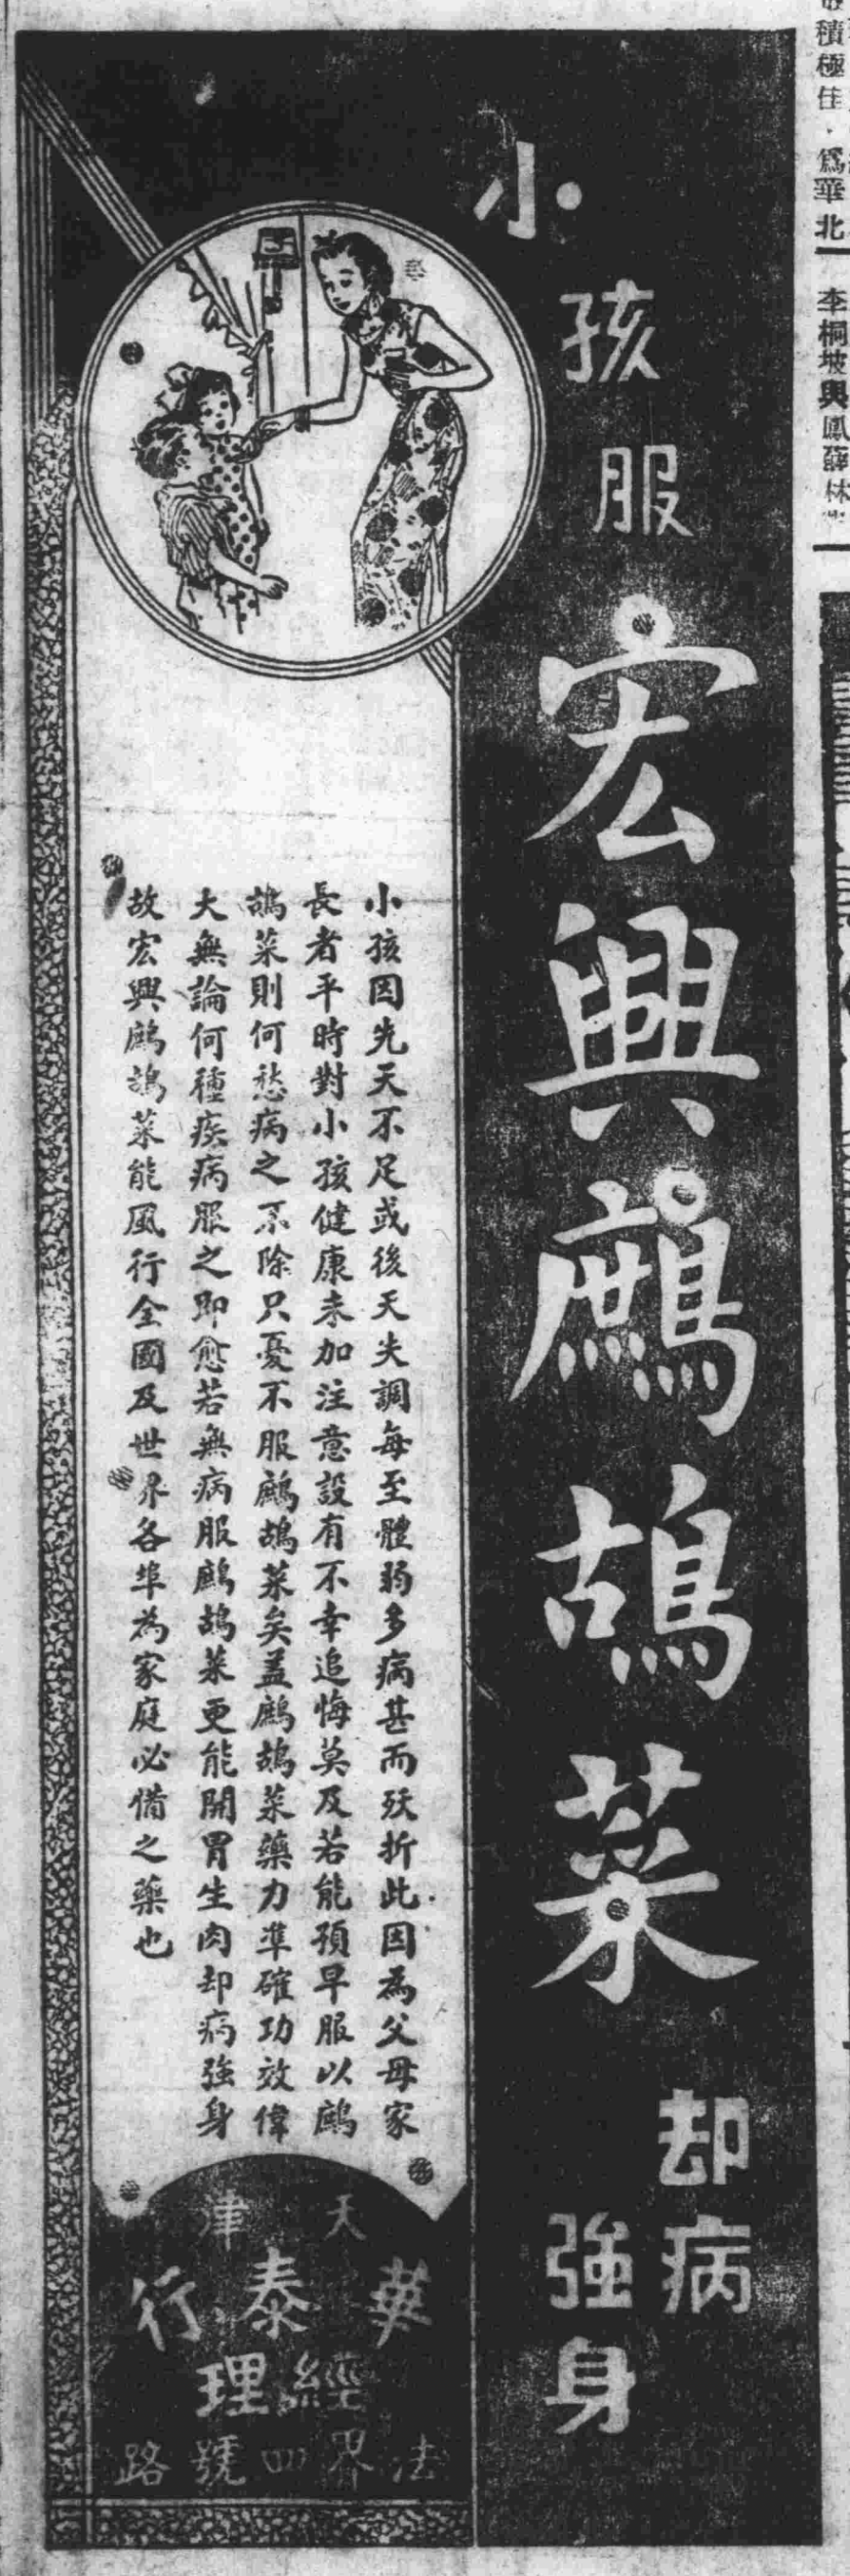 積極佳．爲華北
李桐坡與鳳薛林
小孩服
宏興鷓鴣菜
却病
強身
小孩因先天不足或後天失調每至體弱多病甚而殀折此因為父母家
長者平時對小孩健康未加注意設有不幸追悔莫及若能預早服以鷓
鴣菜則何愁病之不除只憂不服鷓鴣菜矣蓋鷓鴣菜藥力準確功效偉
大無論何種疾病服之即愈若無病服鷓鴣菜更能開胃生肉却病強身
故宏興鷓鴣菜能風行全國及世界各埠為家庭必備之藥也
天津
華泰行
經理
法界四號路